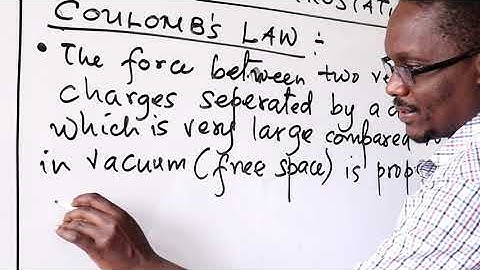 COULOMB'S LAW :-
• The force between two
charges seperated by a
which is very large compared
in vacuum (free space) is